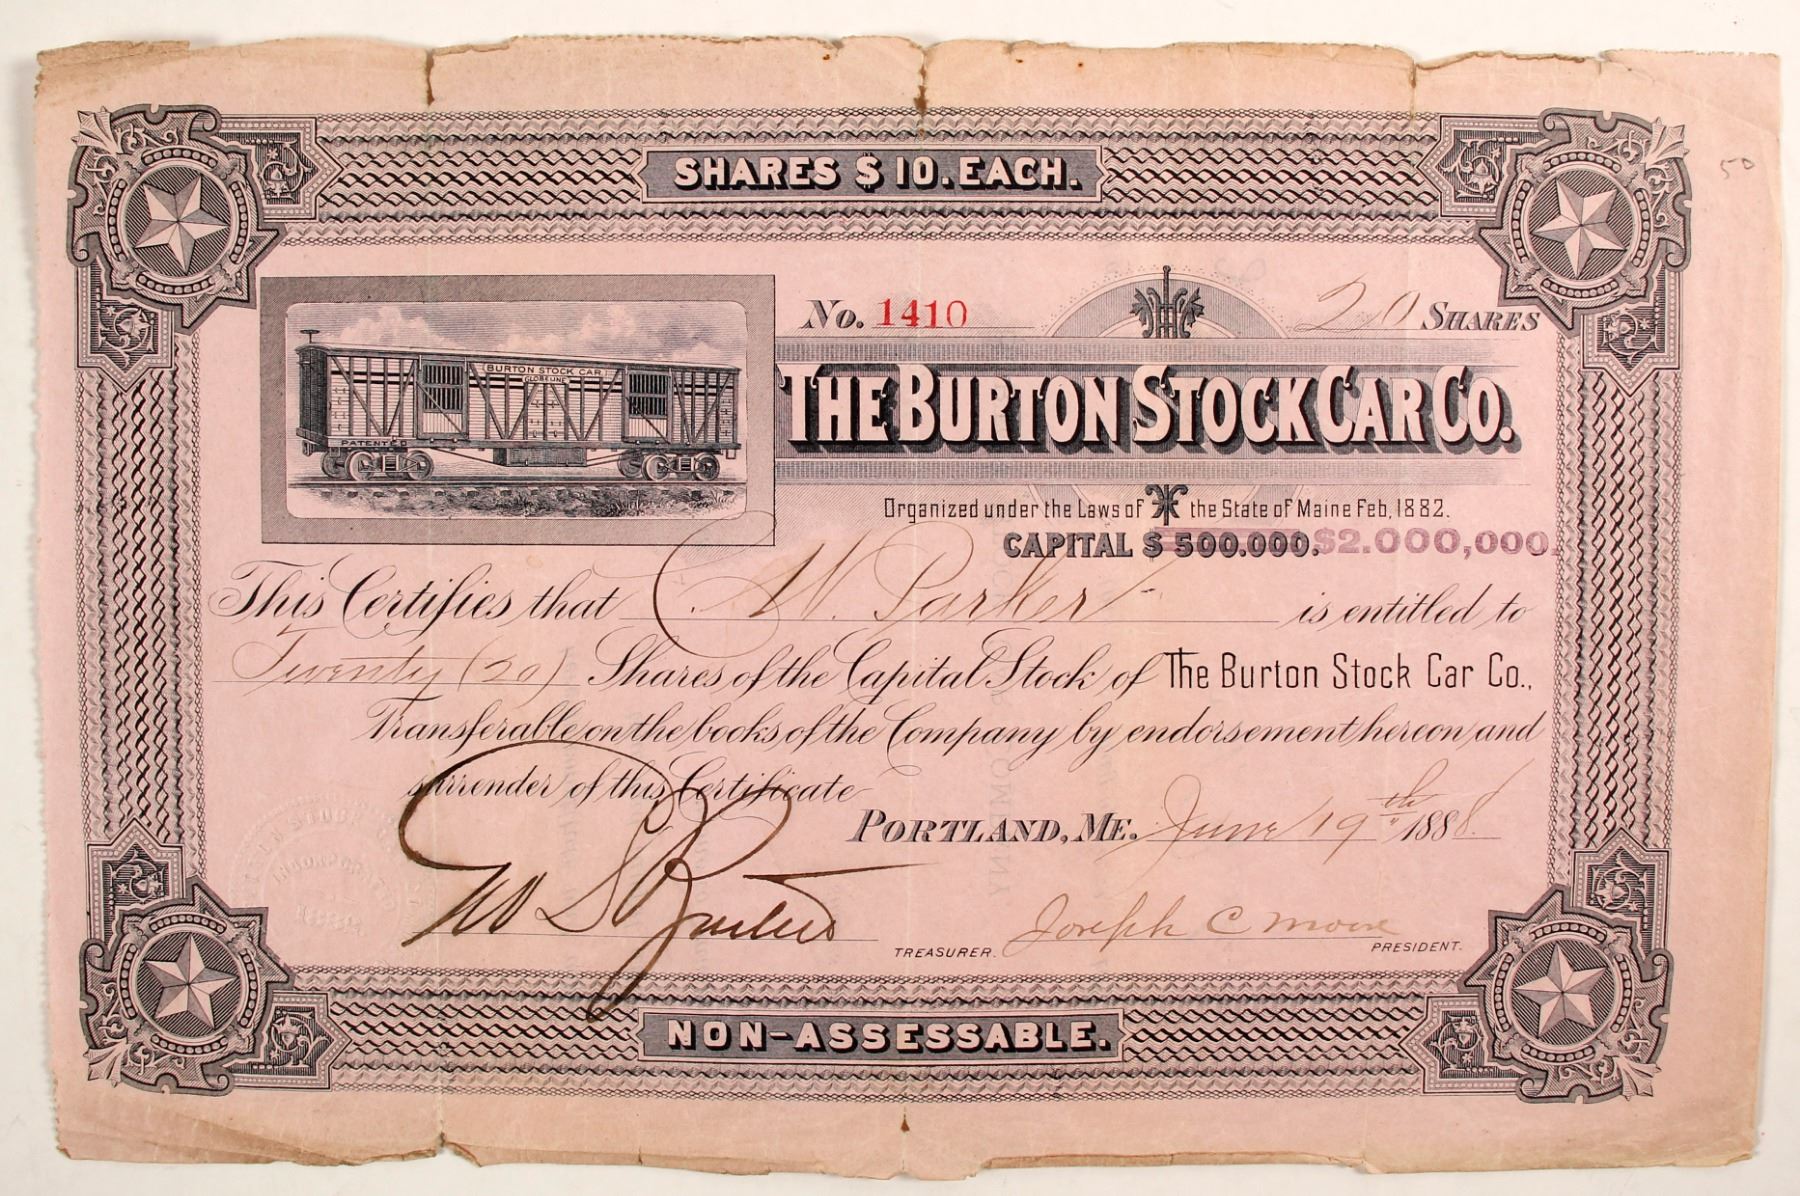 SHARES $10. EACH.
50
No. 1410
20 SHARES
BURTON STOCK CAR.
PATENTED
THE BURTON STOCK CAR CO.
Organized under the Laws of the State of Maine Feb, 1882.
CAPITAL $500.000. $2.000,000.
This Certifies that C. W. Parker is entitled to
Twenty (20) Shares of the Capital Stock of The Burton Stock Car Co.,
Transferable on the books of the Company by endorsement hereon and
surrender of this Certificate
PORTLAND, ME. June 19th 1888
TREASURER. Joseph C Moore
PRESIDENT.
NON-ASSESSABLE.